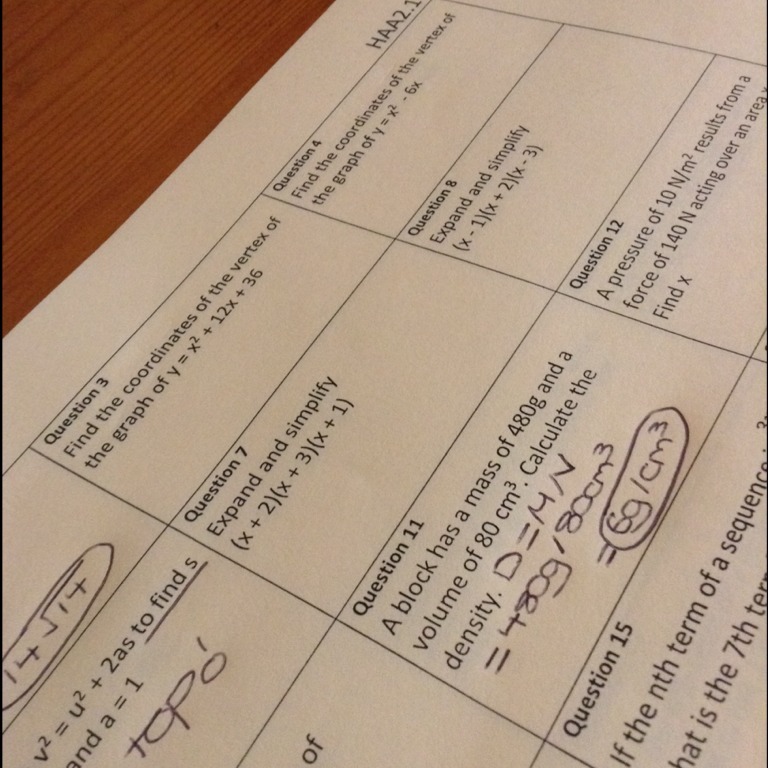 HAA2.1
Question 3
Find the coordinates of the vertex of
the graph of y = x² + 12x + 36
Question 4
Find the coordinates of the vertex of
the graph of y = x² - 6x
14√14
v² = u² + 2as to find s
and a = 1
Question 7
Expand and simplify
(x + 2)(x + 3)(x + 1)
Question 8
Expand and simplify
(x - 1)(x + 2)(x - 3)
of
Question 11
A block has a mass of 480g and a
volume of 80 cm³. Calculate the
density. D = M/V
= 480g/80cm³
= 6g/cm³
Question 12
A pressure of 10 N/m² results from a
force of 140 N acting over an area
Find x
Question 15
If the nth term of a sequence
hat is the 7th term